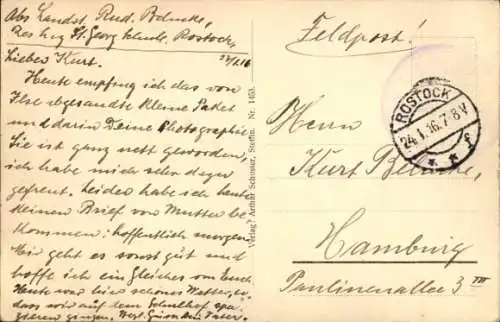 Abs Landst. Rud. Behncke,
Res Laz St. Georg Schule, Rostock,
24/1 16
Lieber Kurt.
Heute empfing ich das von
Ilse abgesandte kleine Paket
und darin Deine Photographie
Sie ist ganz nett geworden,
ich habe mich sehr dazu
gefreut. Leider habe ich heute
keinen Brief von Mutter be-
kommen; hoffentlich morgen.
Mir geht es sonst gut und
hoffe ich ein Gleiches von Euch.
Heute war hier schönes Wetter,
dass wir auf dem Schulhof spa-
zieren gingen. Vater.
Verlag: Arthur Schuster, Stettin. Nr. 163.
Feldpost!
ROSTOCK
24.1.16.7-8V
* * f
Herrn
Kurt Behncke,
Hamburg
Paulinenallee 3 III